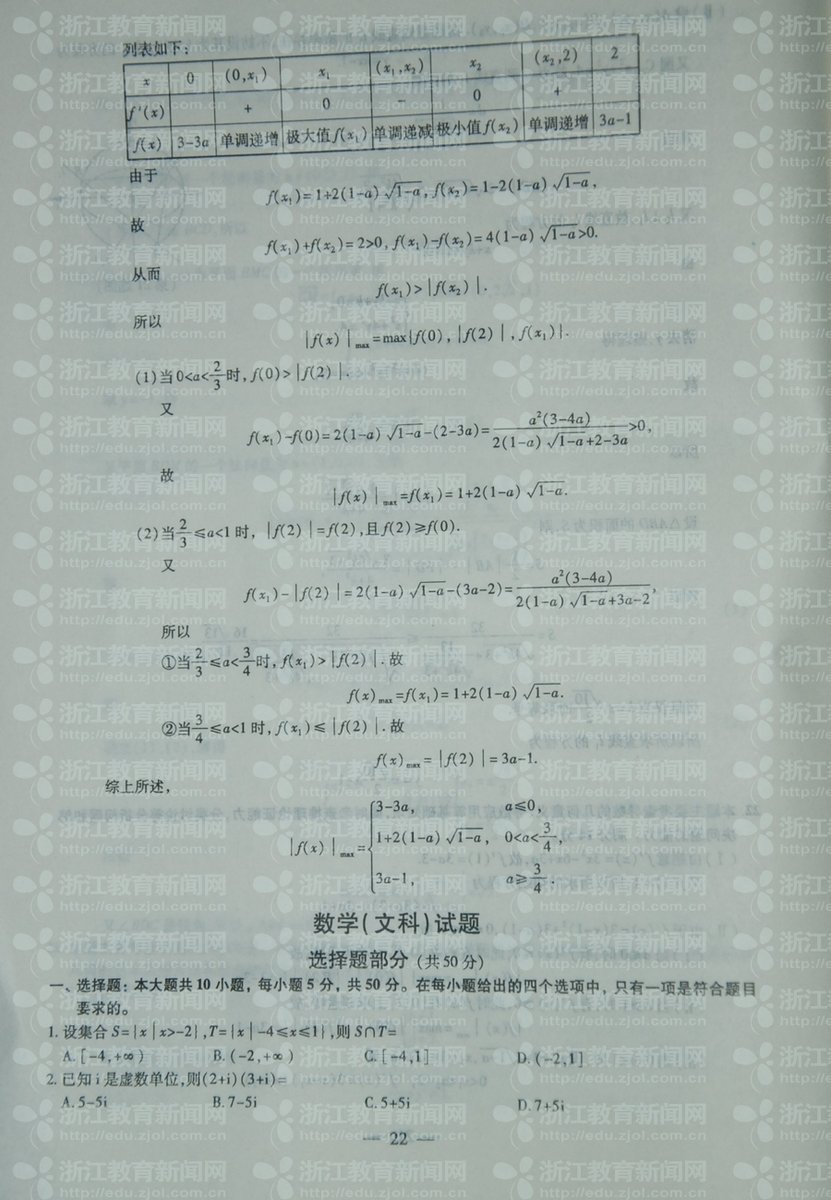 列表如下:
x 0 (0,x₁) x₁ (x₁,x₂) x₂ (x₂,2) 2
f'(x) + 0 − 0 +
f(x) 3-3a 单调递增 极大值f(x₁) 单调递减 极小值f(x₂) 单调递增 3a-1
由于
f(x₁)=1+2(1-a)√(1-a), f(x₂)=1-2(1-a)√(1-a),
故
f(x₁)+f(x₂)=2>0, f(x₁)-f(x₂)=4(1-a)√(1-a)>0.
从而
f(x₁)>|f(x₂)|.
所以
|f(x)|max=max{f(0),|f(2)|,f(x₁)}.
(1)当0<a<2/3时,f(0)>|f(2)|.
又
f(x₁)-f(0)=2(1-a)√(1-a)-(2-3a)=a²(3-4a)/(2(1-a)√(1-a)+2-3a)>0,
故
|f(x)|max=f(x₁)=1+2(1-a)√(1-a).
(2)当2/3≤a<1时,|f(2)|=f(2),且f(2)≥f(0).
又
f(x₁)-|f(2)|=2(1-a)√(1-a)-(3a-2)=a²(3-4a)/(2(1-a)√(1-a)+3a-2),
所以
①当2/3≤a<3/4时,f(x₁)>|f(2)|.故
f(x)max=f(x₁)=1+2(1-a)√(1-a).
②当3/4≤a<1时,f(x₁)≤|f(2)|.故
f(x)max=|f(2)|=3a-1.
综上所述,
|f(x)|max={3-3a, a≤0,
1+2(1-a)√(1-a), 0<a<3/4,
3a-1, a≥3/4.
数学(文科)试题
选择题部分(共50分)
一、选择题:本大题共10小题,每小题5分,共50分。在每小题给出的四个选项中,只有一项是符合题目
要求的。
1.设集合S={x|x>-2},T={x|-4≤x≤1},则S∩T=
A.[-4,+∞) B.(-2,+∞) C.[-4,1] D.(-2,1]
2.已知i是虚数单位,则(2+i)(3+i)=
A.5-5i B.7-5i C.5+5i D.7+5i
— 22 —
浙江教育新闻网
http://edu.zjol.com.cn